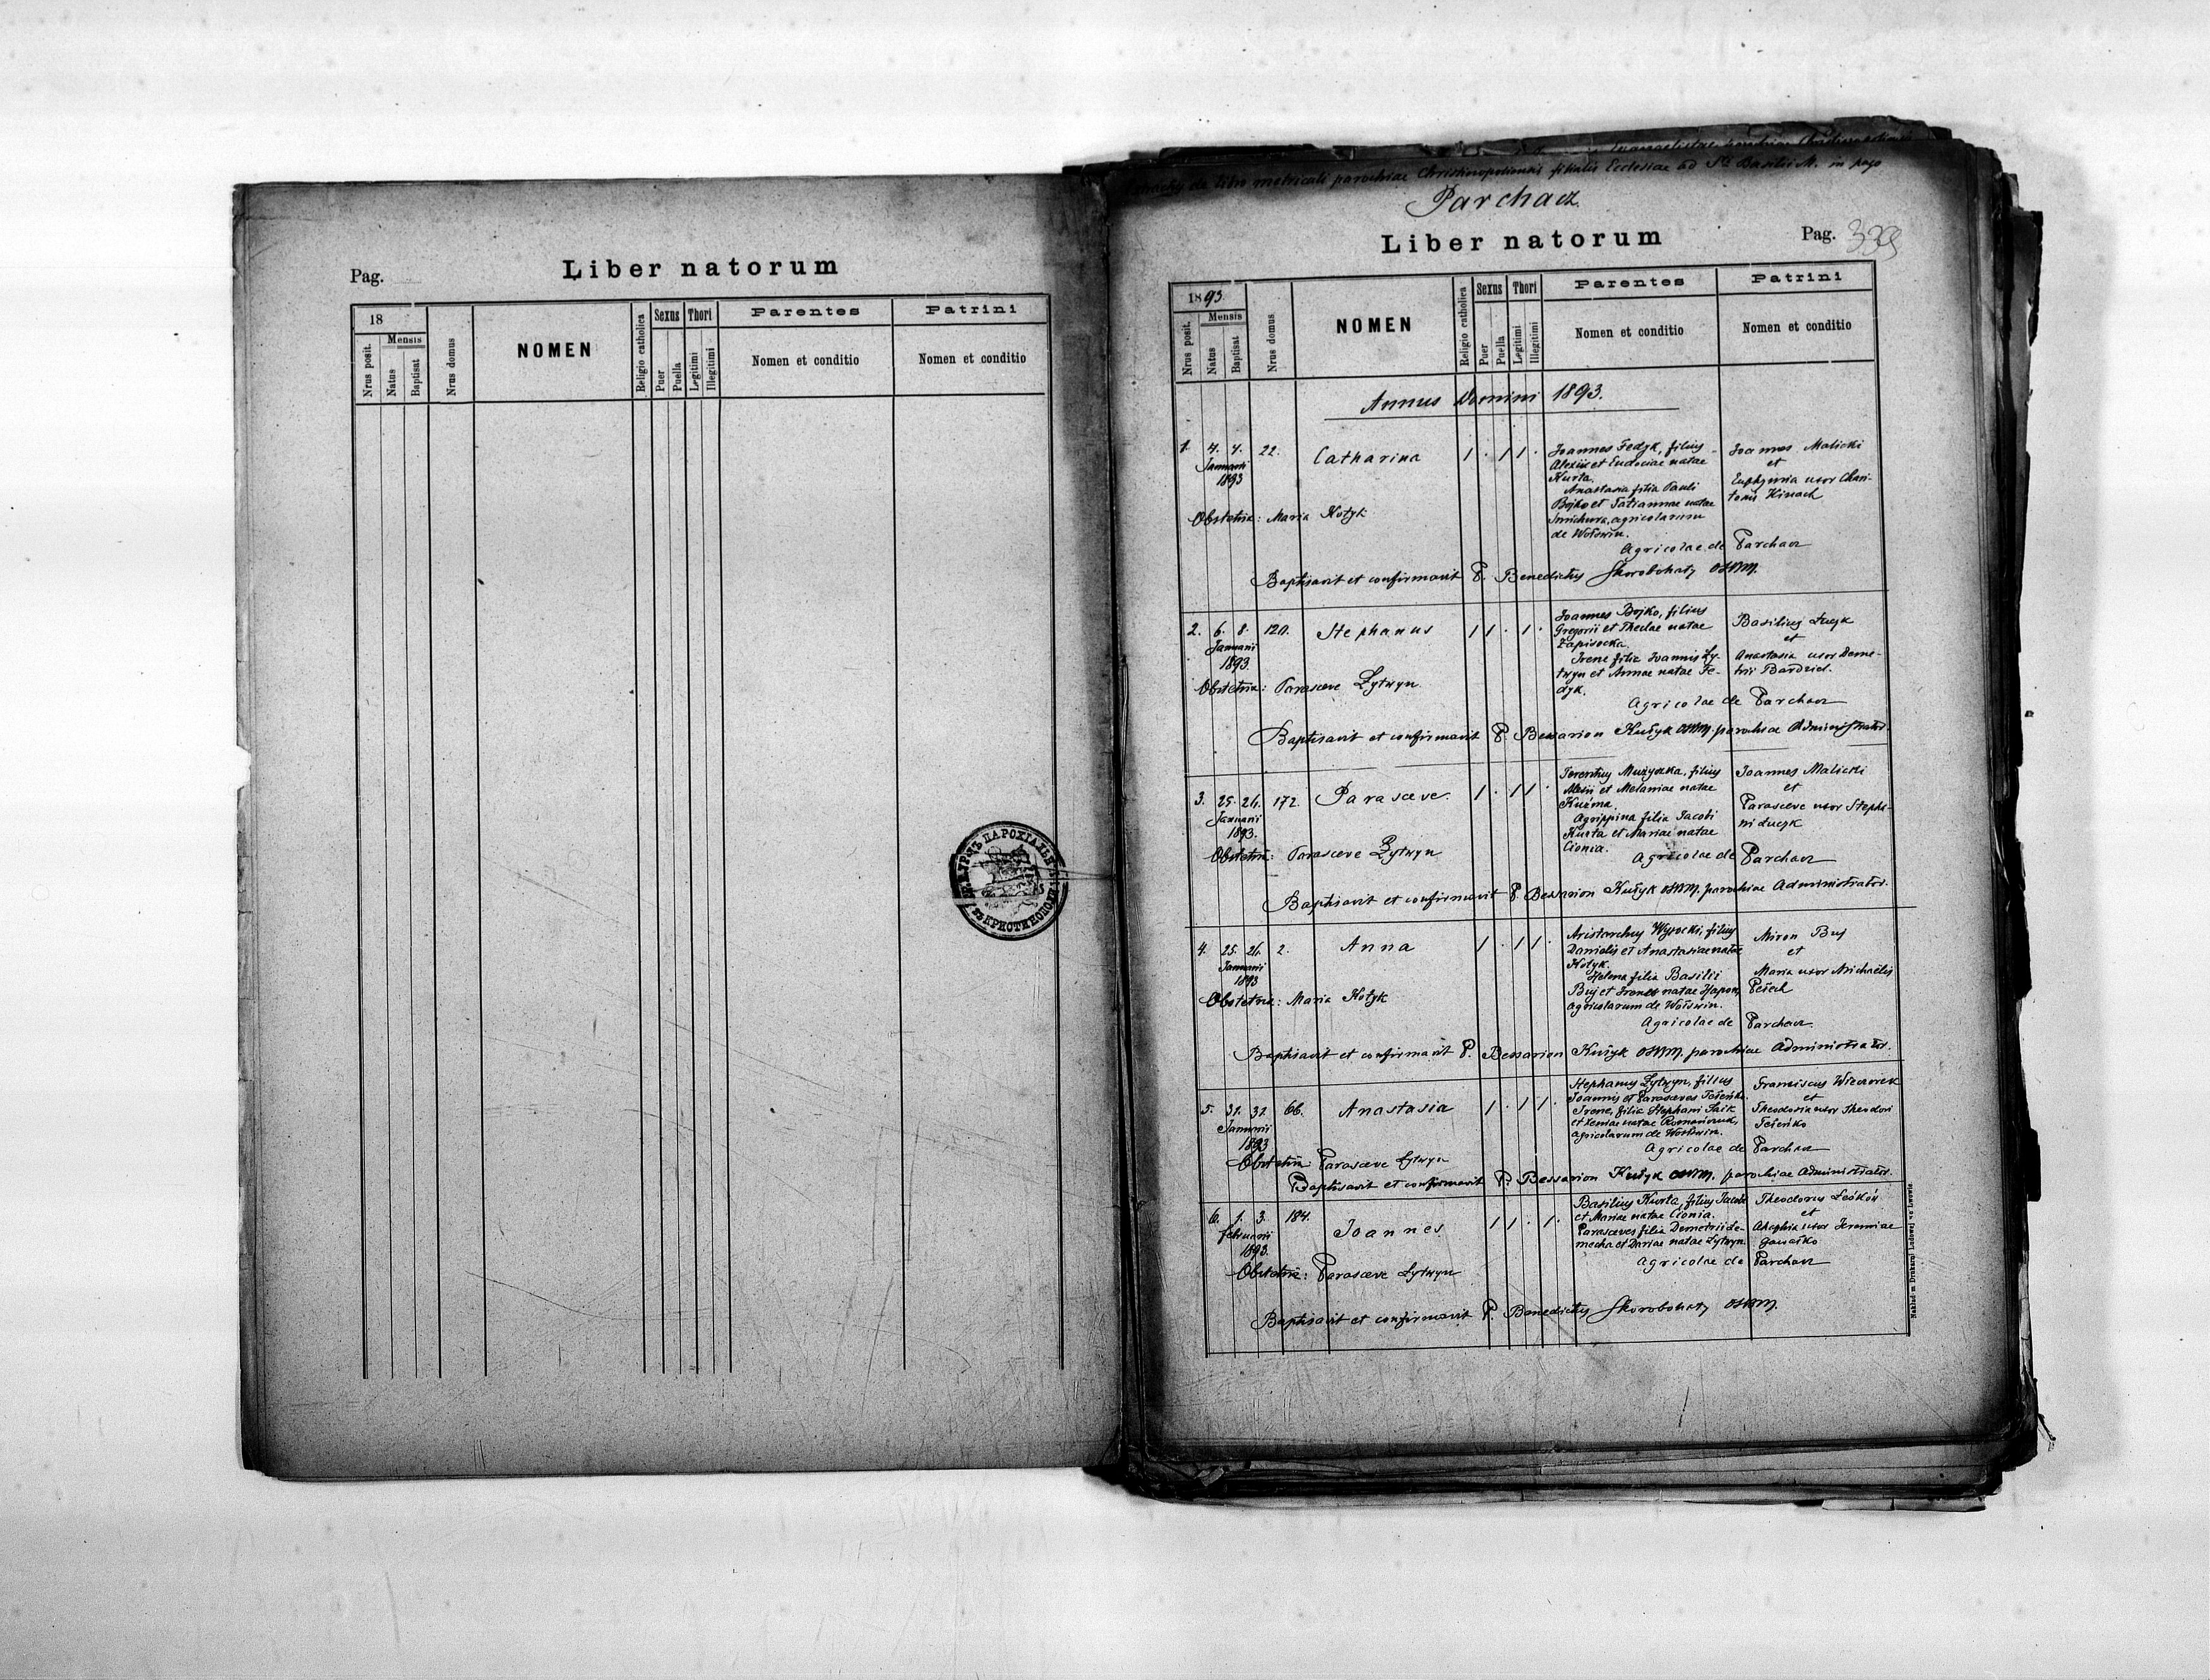 Pag.
Liber natorum
18
Mensis
Nrus posit.
Natus
Baptisat
Nrus domus
NOMEN
Religio catholica
Sexus
Puer
Puella
Thori
Legitimi
Illegitimi
Parentes
Nomen et conditio
Patrini
Nomen et conditio
libro metricali parochiae Christinopoliensis filialis Ecclesiae ad Sti Basilii M. in pago
Parchacz
Liber natorum
Pag. 339
1893
Mensis
Nrus posit.
Natus
Baptisat
Nrus domus
NOMEN
Religio catholica
Sexus
Puer
Puella
Thori
Legitimi
Illegitimi
Parentes
Nomen et conditio
Patrini
Nomen et conditio
Annus Domini 1893.
1. 4. 4. 22. Catharina 1 . 1 1 .
Januarii
1893
Joannes Fedyk, filius
Alexii et Eudociae natae
Kurta.
Anastasia filia Pauli
Bojko et Tatiannae natae
Smichura, agricolarum
de Wołświn.
Joannes Malicki
et
Euphymia uxor Chari-
tonis Hinach
Obstetrix: Maria Kotyk
Agricolae de Parchacz
Baptisavit et confirmavit P. Benedictus Skorobohaty OSBM.
2. 6. 8. 120. Stephanus 1 1 . 1 .
Januarii
1893.
Joannes Bojko, filius
Gregorii et Theclae natae
Zapisocka.
Irene filia Joannis Ly-
twyn et Annae natae Fe-
dyk.
Basilius Łucyk
et
Anastasia uxor Deme-
trii Bardziel.
Obstetrix: Parasceve Lytwyn.
Agricolae de Parchacz
Baptisavit et confirmavit P. Bessarion Kułyk OSBM. parochiae Administrator.
3. 25. 26. 172. Parasceve. 1 . 1 1 .
Januarii
1893.
Terentius Muzyczka, filius
Alexii et Melaniae natae
Kuźma.
Agrippina filia Jacobi
Kurta et Mariae natae
Cionia.
Joannes Malicki
et
Parasceve uxor Stepha-
ni Łucyk
Obstetrix: Parasceve Lytwyn
Agricolae de Parchacz
Baptisavit et confirmavit P. Bessarion Kułyk OSBM. parochiae Administrator.
4. 25. 26. 2. Anna 1 . 1 1 .
Januarii
1893
Aristarchus Wysocki, filius
Danielis et Anastasiae natae
Kotyk.
Helena filia Basilii
Buj et Irenes natae Hapon,
agricolarum de Wołświn.
Miron Buj
et
Maria uxor Michaëlis
Obstetrix: Maria Kotyk
Agricolae de Parchacz.
Baptisavit et confirmavit P. Bessarion Kułyk OSBM. parochiae Administrator.
5. 31. 31. 66. Anastasia 1 . 1 1 .
Januarii
1893
Stephanus Lytwyn, filius
Joannis et Parasceves
Irene, filia Stephani
et Xeniae natae Romańczuk,
agricolarum de Wołświn.
Franciscus Wieczorek
et
Theodosia uxor Theodori
Obstetrix Parasceve Lytwyn
Agricolae de Parchacz
Baptisavit et confirmavit P. Bessarion Kułyk OSBM. parochiae Administrator.
6. 1. 3. 184. Joannes 1 1 . 1 .
Februarii
1893.
Basilius Kurta, filius Jacobi
et Mariae natae Cionia.
Parasceves filia Demetrii De-
mecha et Dariae natae Lytwyn.
Theodorus
et
Agaphia uxor Jeremiae
Obstetrix: Parasceve Lytwyn
Agricolae de Parchacz
Baptisavit et confirmavit P. Benedictus Skorobohaty OSBM.